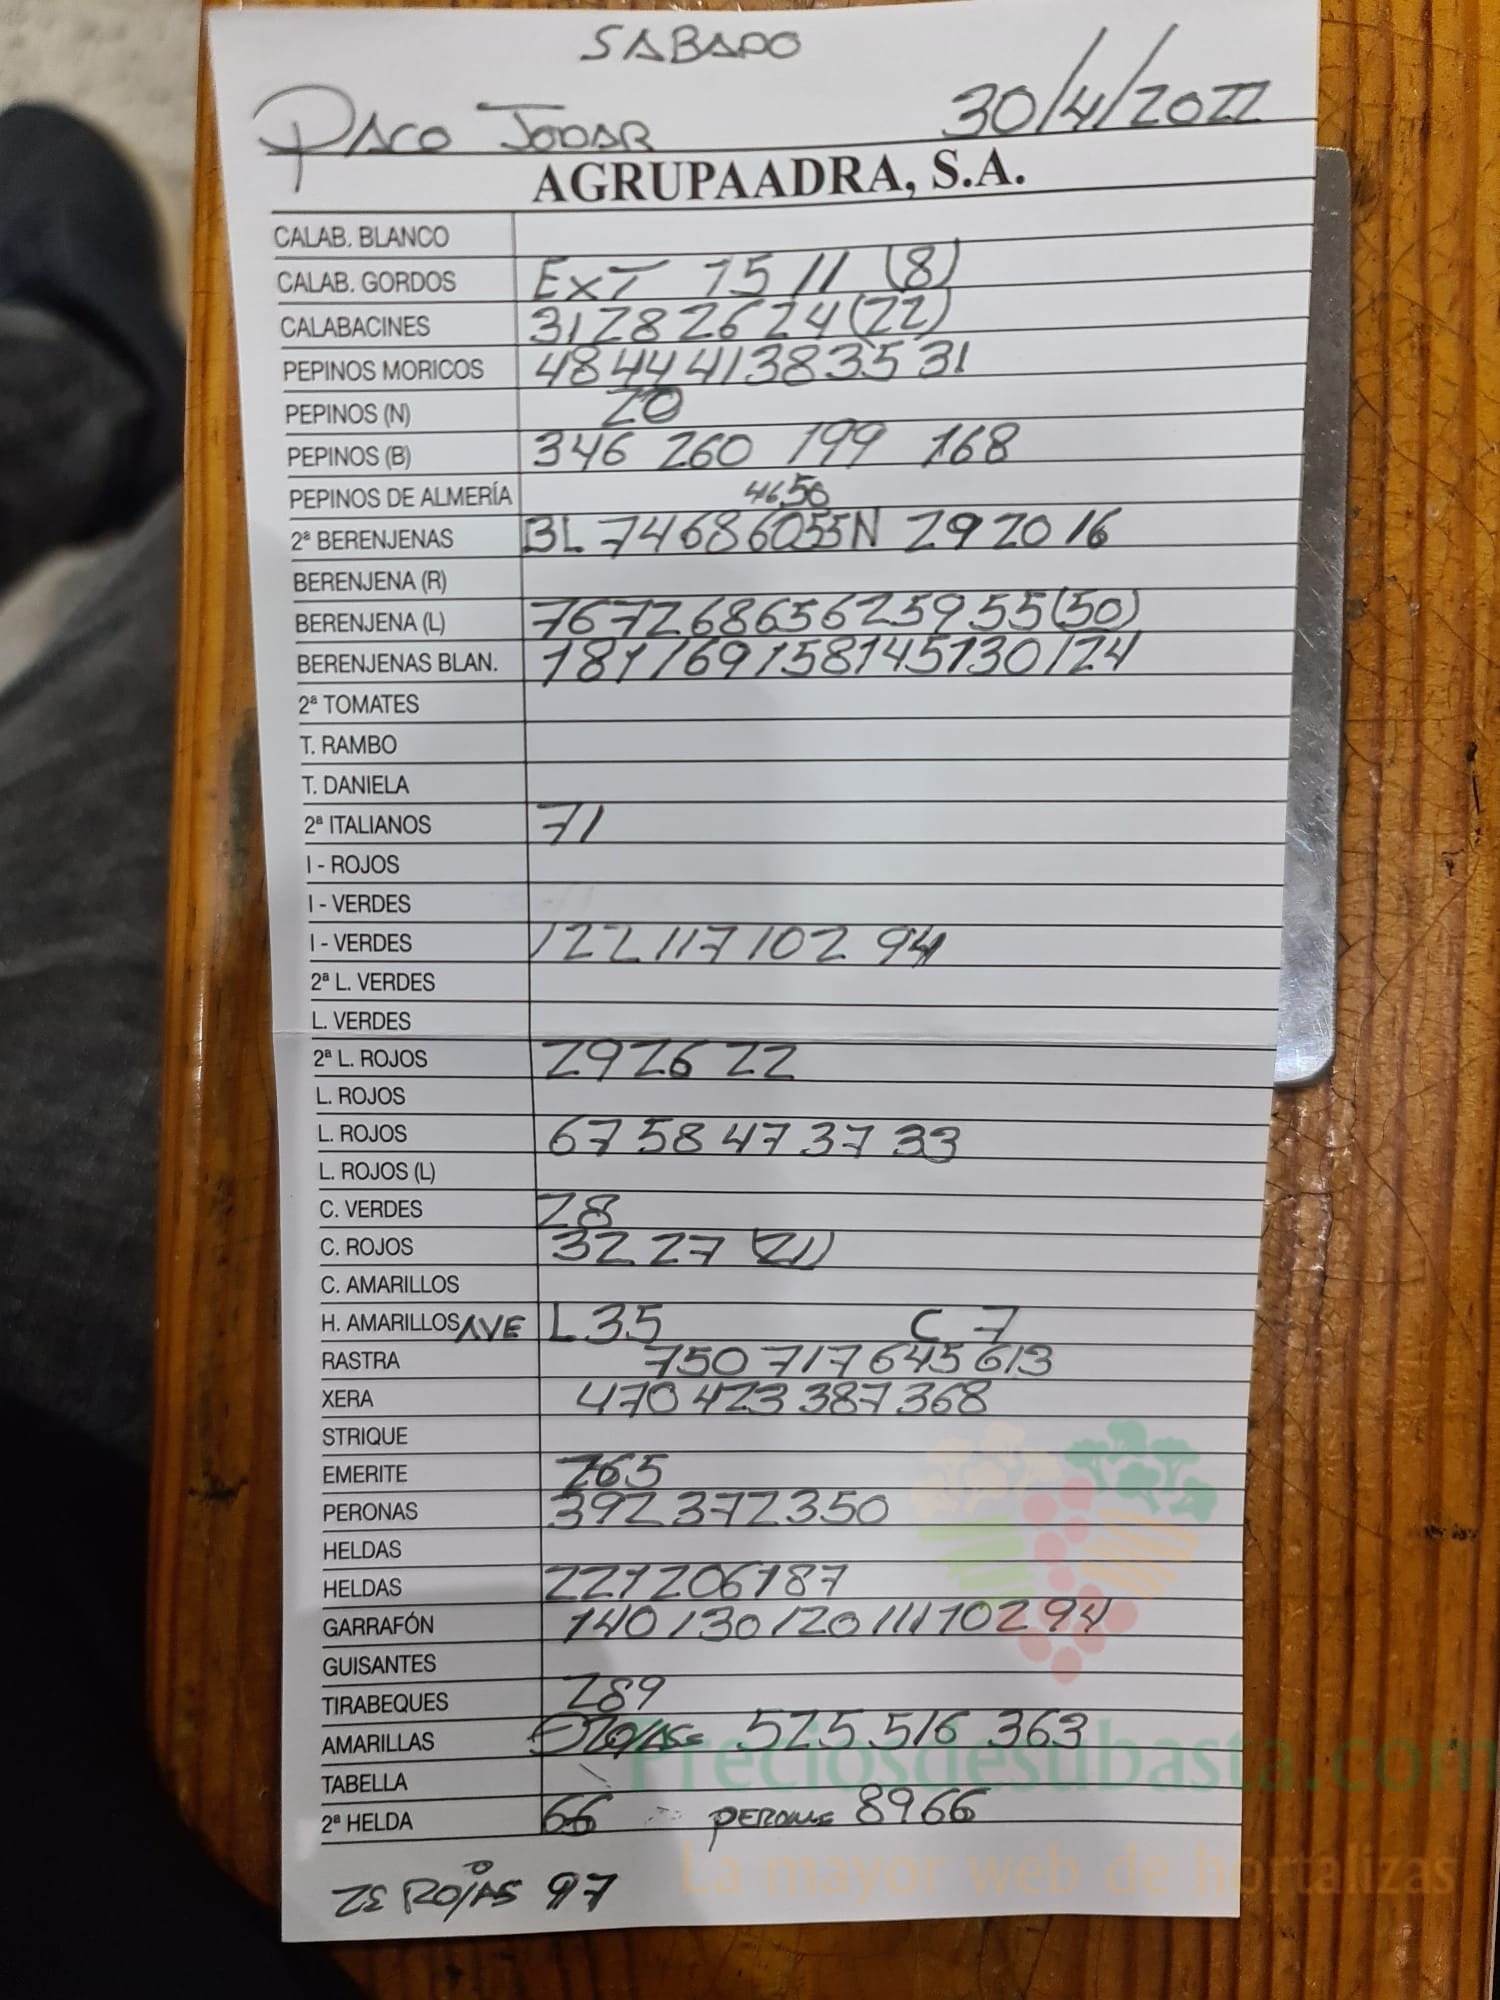 SABADO
PACO JODAR 30/4/2022
AGRUPAADRA, S.A.
CALAB. BLANCO
CALAB. GORDOS EXT 15 11 (8)
CALABACINES 31 28 26 24 (22)
PEPINOS MORICOS 48 44 41 38 35 31
PEPINOS (N) 20
PEPINOS (B) 346 260 199 168
PEPINOS DE ALMERÍA 46 50
2ª BERENJENAS BL 74 68 60 55 N 29 20 16
BERENJENA (R)
BERENJENA (L) 76 72 68 65 62 59 55 (50)
BERENJENAS BLAN. 181 169 158 145 130 124
2ª TOMATES
T. RAMBO
T. DANIELA
2ª ITALIANOS 71
I - ROJOS
I - VERDES
I - VERDES 122 117 102 94
2ª L. VERDES
L. VERDES
2ª L. ROJOS 29 26 22
L. ROJOS
L. ROJOS 67 58 47 37 33
L. ROJOS (L)
C. VERDES 28
C. ROJOS 32 27 (21)
C. AMARILLOS
H. AMARILLOS AVE L 35 C 7
RASTRA 750 717 645 613
XERA 470 423 387 368
STRIQUE
EMERITE 265
PERONAS 392 372 350
HELDAS
HELDAS 221 206 187
GARRAFÓN 140 130 120 111 102 94
GUISANTES
TIRABEQUES 289
AMARILLAS 525 516 363
TABELLA
2ª HELDA 66 PERONA 89 66
Preciosdesubasta.com
La mayor web de hortalizas
ROJAS 97